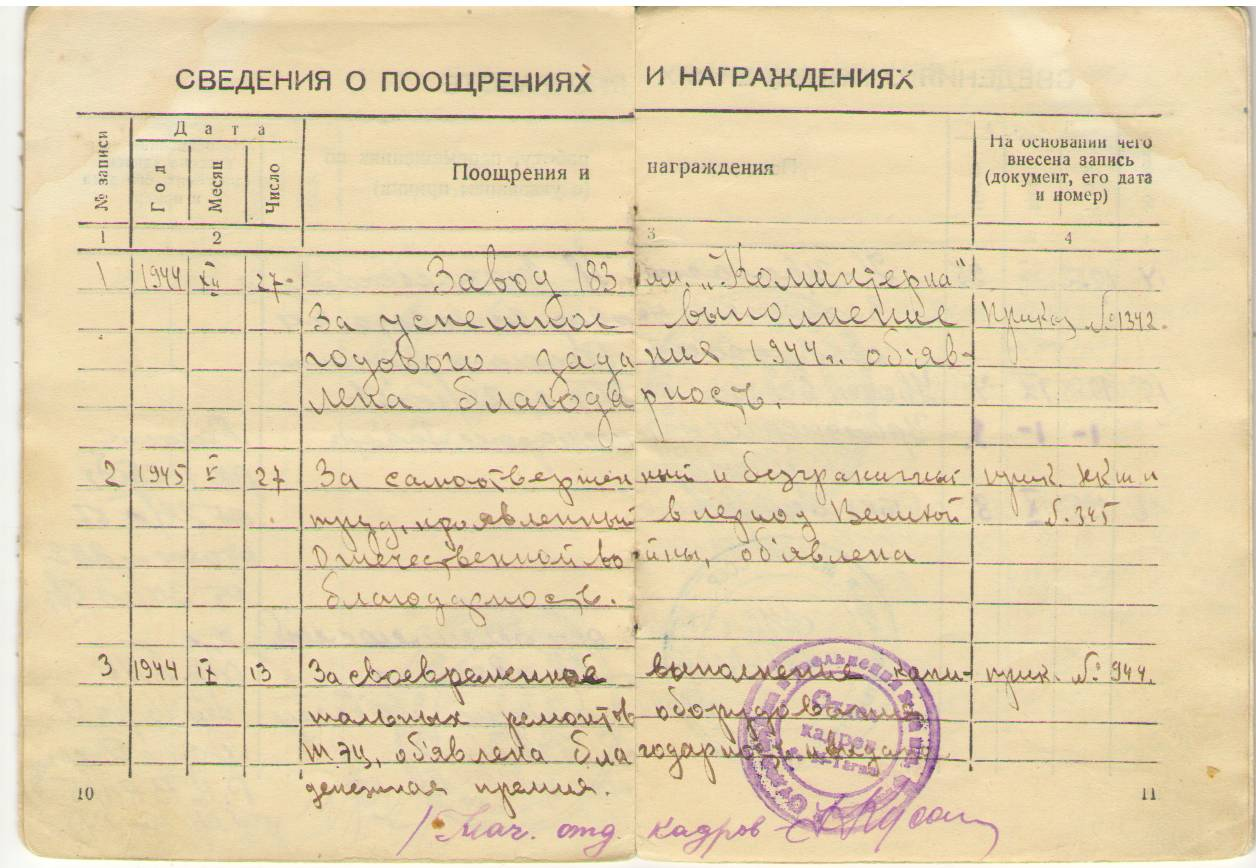 СВЕДЕНИЯ О ПООЩРЕНИЯХ И НАГРАЖДЕНИЯХ
№ записи
Дата
Год
Месяц
Число
Поощрения и награждения
На основании чего
внесена запись
(документ, его дата
и номер)
1 2 3 4
1 1944 XII 27 Завод 183 им. „Коминтерна"
За успешное выполнение Приказ №1342.
годового задания 1944г. объяв-
лена благодарность.
2 1945 V 27 За самоотверженный и безграничный прик.
труд, проявленный в период Великой №345
Отечественной войны, объявлена
благодарность.
3 1944 IX 13 За своевременное выполнение капи- прик. №944.
тальных ремонтов оборудования
объявлена благодарность и выдана
денежная премия.
Отдел
кадров
10
11
Нач. отд. кадров